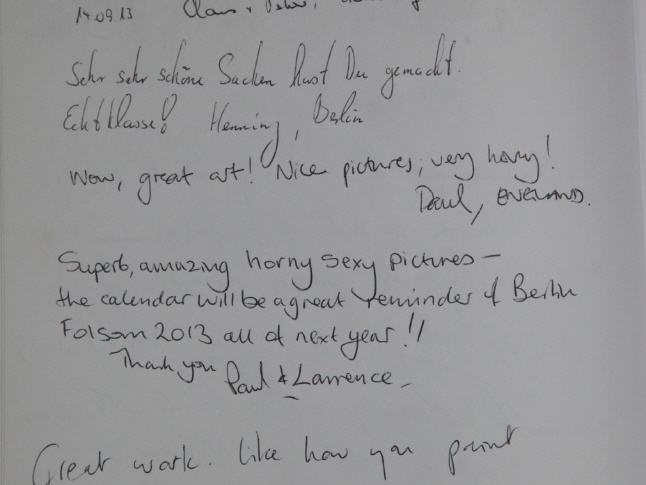 14.09.13 Claus +
Sehr sehr schöne Sachen hast Du gemacht.
Echt klasse! Henning, Berlin
Wow, great art! Nice pictures, very horny!
Paul, ENGLAND.
Superb, amazing horny sexy pictures –
the calendar will be a great reminder of Berlin
Folsom 2013 all of next year!!
Thank you Paul & Lawrence –
Great work. like how you paint